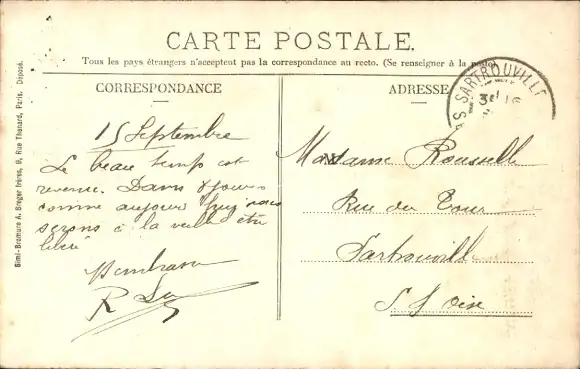 CARTE POSTALE.
Tous les pays étrangers n'acceptent pas la correspondance au recto. (Se renseigner à la poste)
CORRESPONDANCE
15 Septembre
Le beau temps est
revenu. Dans 8 jours
comme aujour nous
serons à la veille d'être
libéré
R
ADRESSE
SARTROUVILLE
Madame Rousselle
Rue du
Sartrouville
S. & Oise
Simi-Bromure A. Breger frères, 9, Rue Thénard, Paris. Déposé.